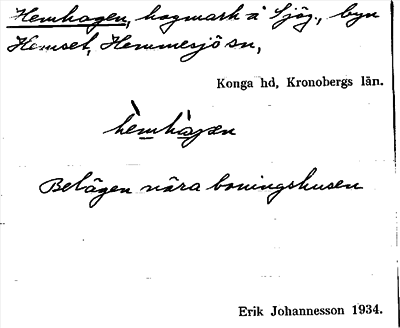 Hemhagen, hagmark å Sjög., byn
Hemset, Hemmesjö sn,
Konga hd, Kronobergs län.
hèmhàgen
Belägen nära boningshusen
Erik Johannesson 1934.